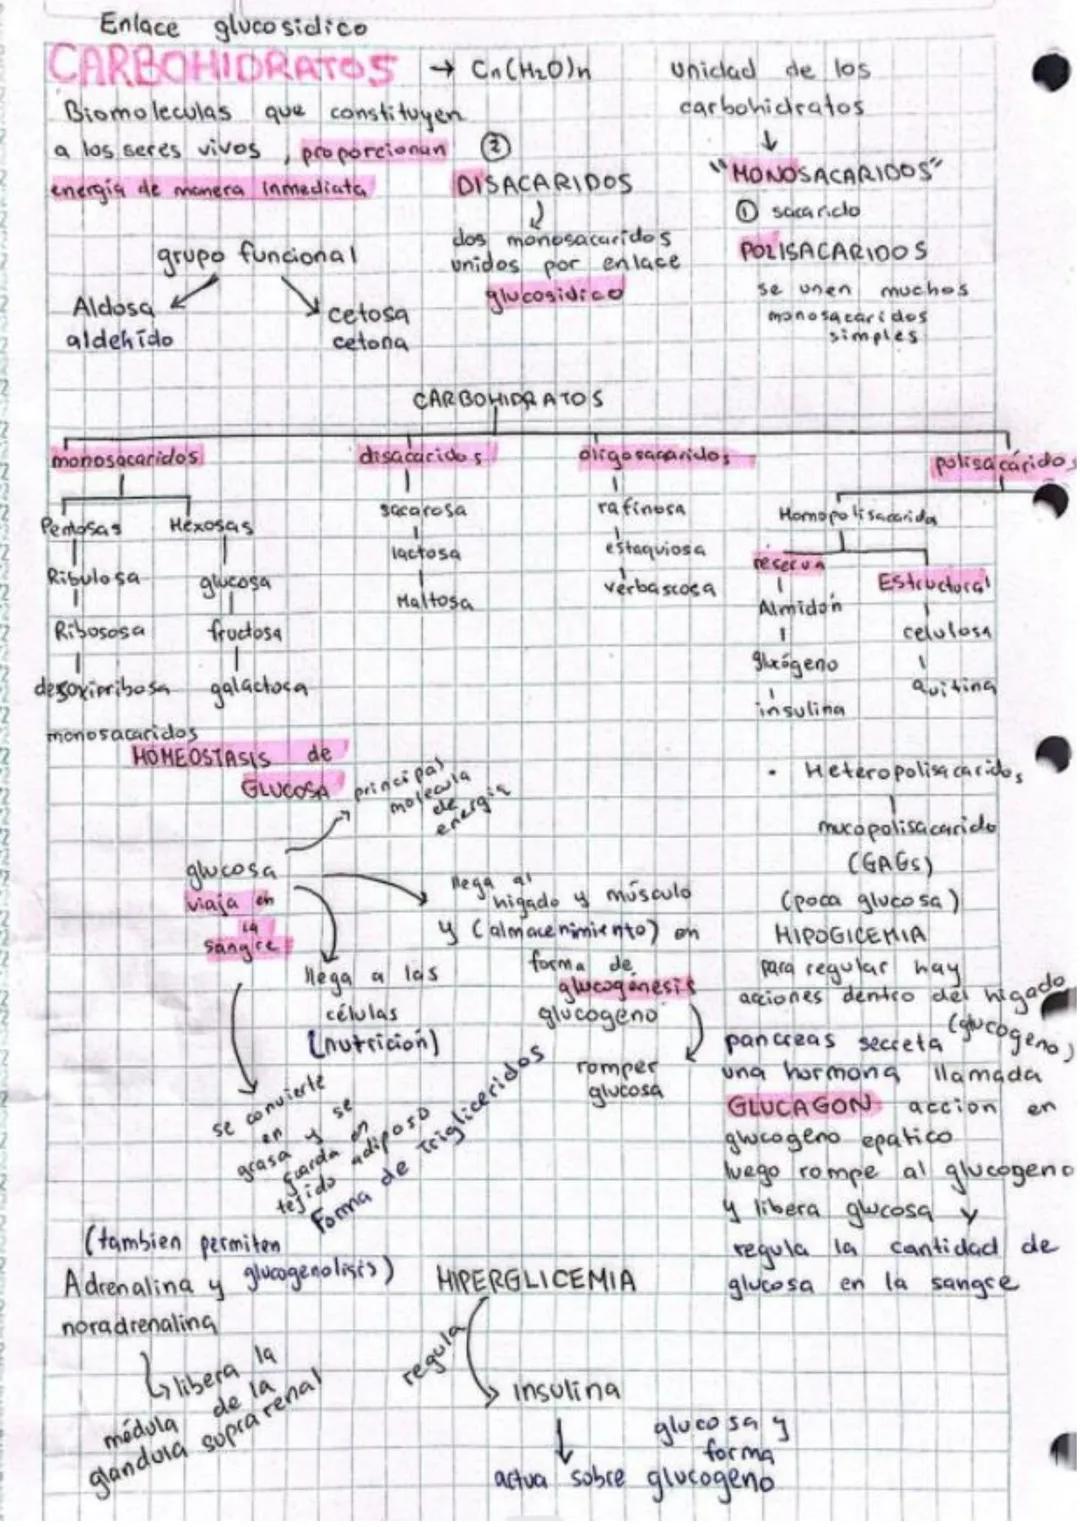 Enlace glucosidico
CARBOHIDRATOS → Cn(H2O)n
Biomoleculas que constituyen
a los seres vivos, proporcionan
energía de manera inmediata
grupo funcional
Aldosa
aldehído
cetosa
cetona
②
DISACARIDOS
dos monosacaridos
unidos por enlace
glucosidico
unidad de los
carbohidratos
"MONOSACARIDOS"
① sacarido
POLISACARIDOS
se unen muchos
monosacaridos
simples
CARBOHIDRATOS
monosacaridos
disacaridos
oligosacaridos
polisacáridos
Pentosas
Hexosas
Ribulosa
Ribososa
desoxirribosa
glucosa
fructosa
galactosa
sacarosa
lactosa
Maltosa
rafinosa
estaquiosa
verbascosa
Homopolisacarido
reserva
Almidón
glucógeno
insulina
Estructural
celulosa
quitina
monosacaridos
HOMEOSTASIS de
GLUCOSA
principal
molecula
de
energia
glucosa
viaja en
la
sangre
llega al
higado y músculo
y (almacenimiento) en
forma de
glucogénesis
glucogeno
romper
glucosa
llega a las
células
(nutrición)
se convierte
en y se
grasa guarda en
tejido adiposo
Forma de Trigliceridos
• Heteropolisacaridos
mucopolisacarido
(GAGs)
(poca glucosa)
HIPOGICEMIA
para regular hay
acciones dentro del higado
(glucogeno)
pancreas secreta
una hormona llamada
GLUCAGON accion en
glucogeno epatico
luego rompe al glucogeno
y libera glucosa y
regula la cantidad de
glucosa en la sangre
(tambien permiten
glucogenolisis)
Adrenalina y
noradrenalina
libera la
médula de la
glandula suprarenal
HIPERGLICEMIA
regula
insulina
actua sobre
glucosa y
forma
glucogeno